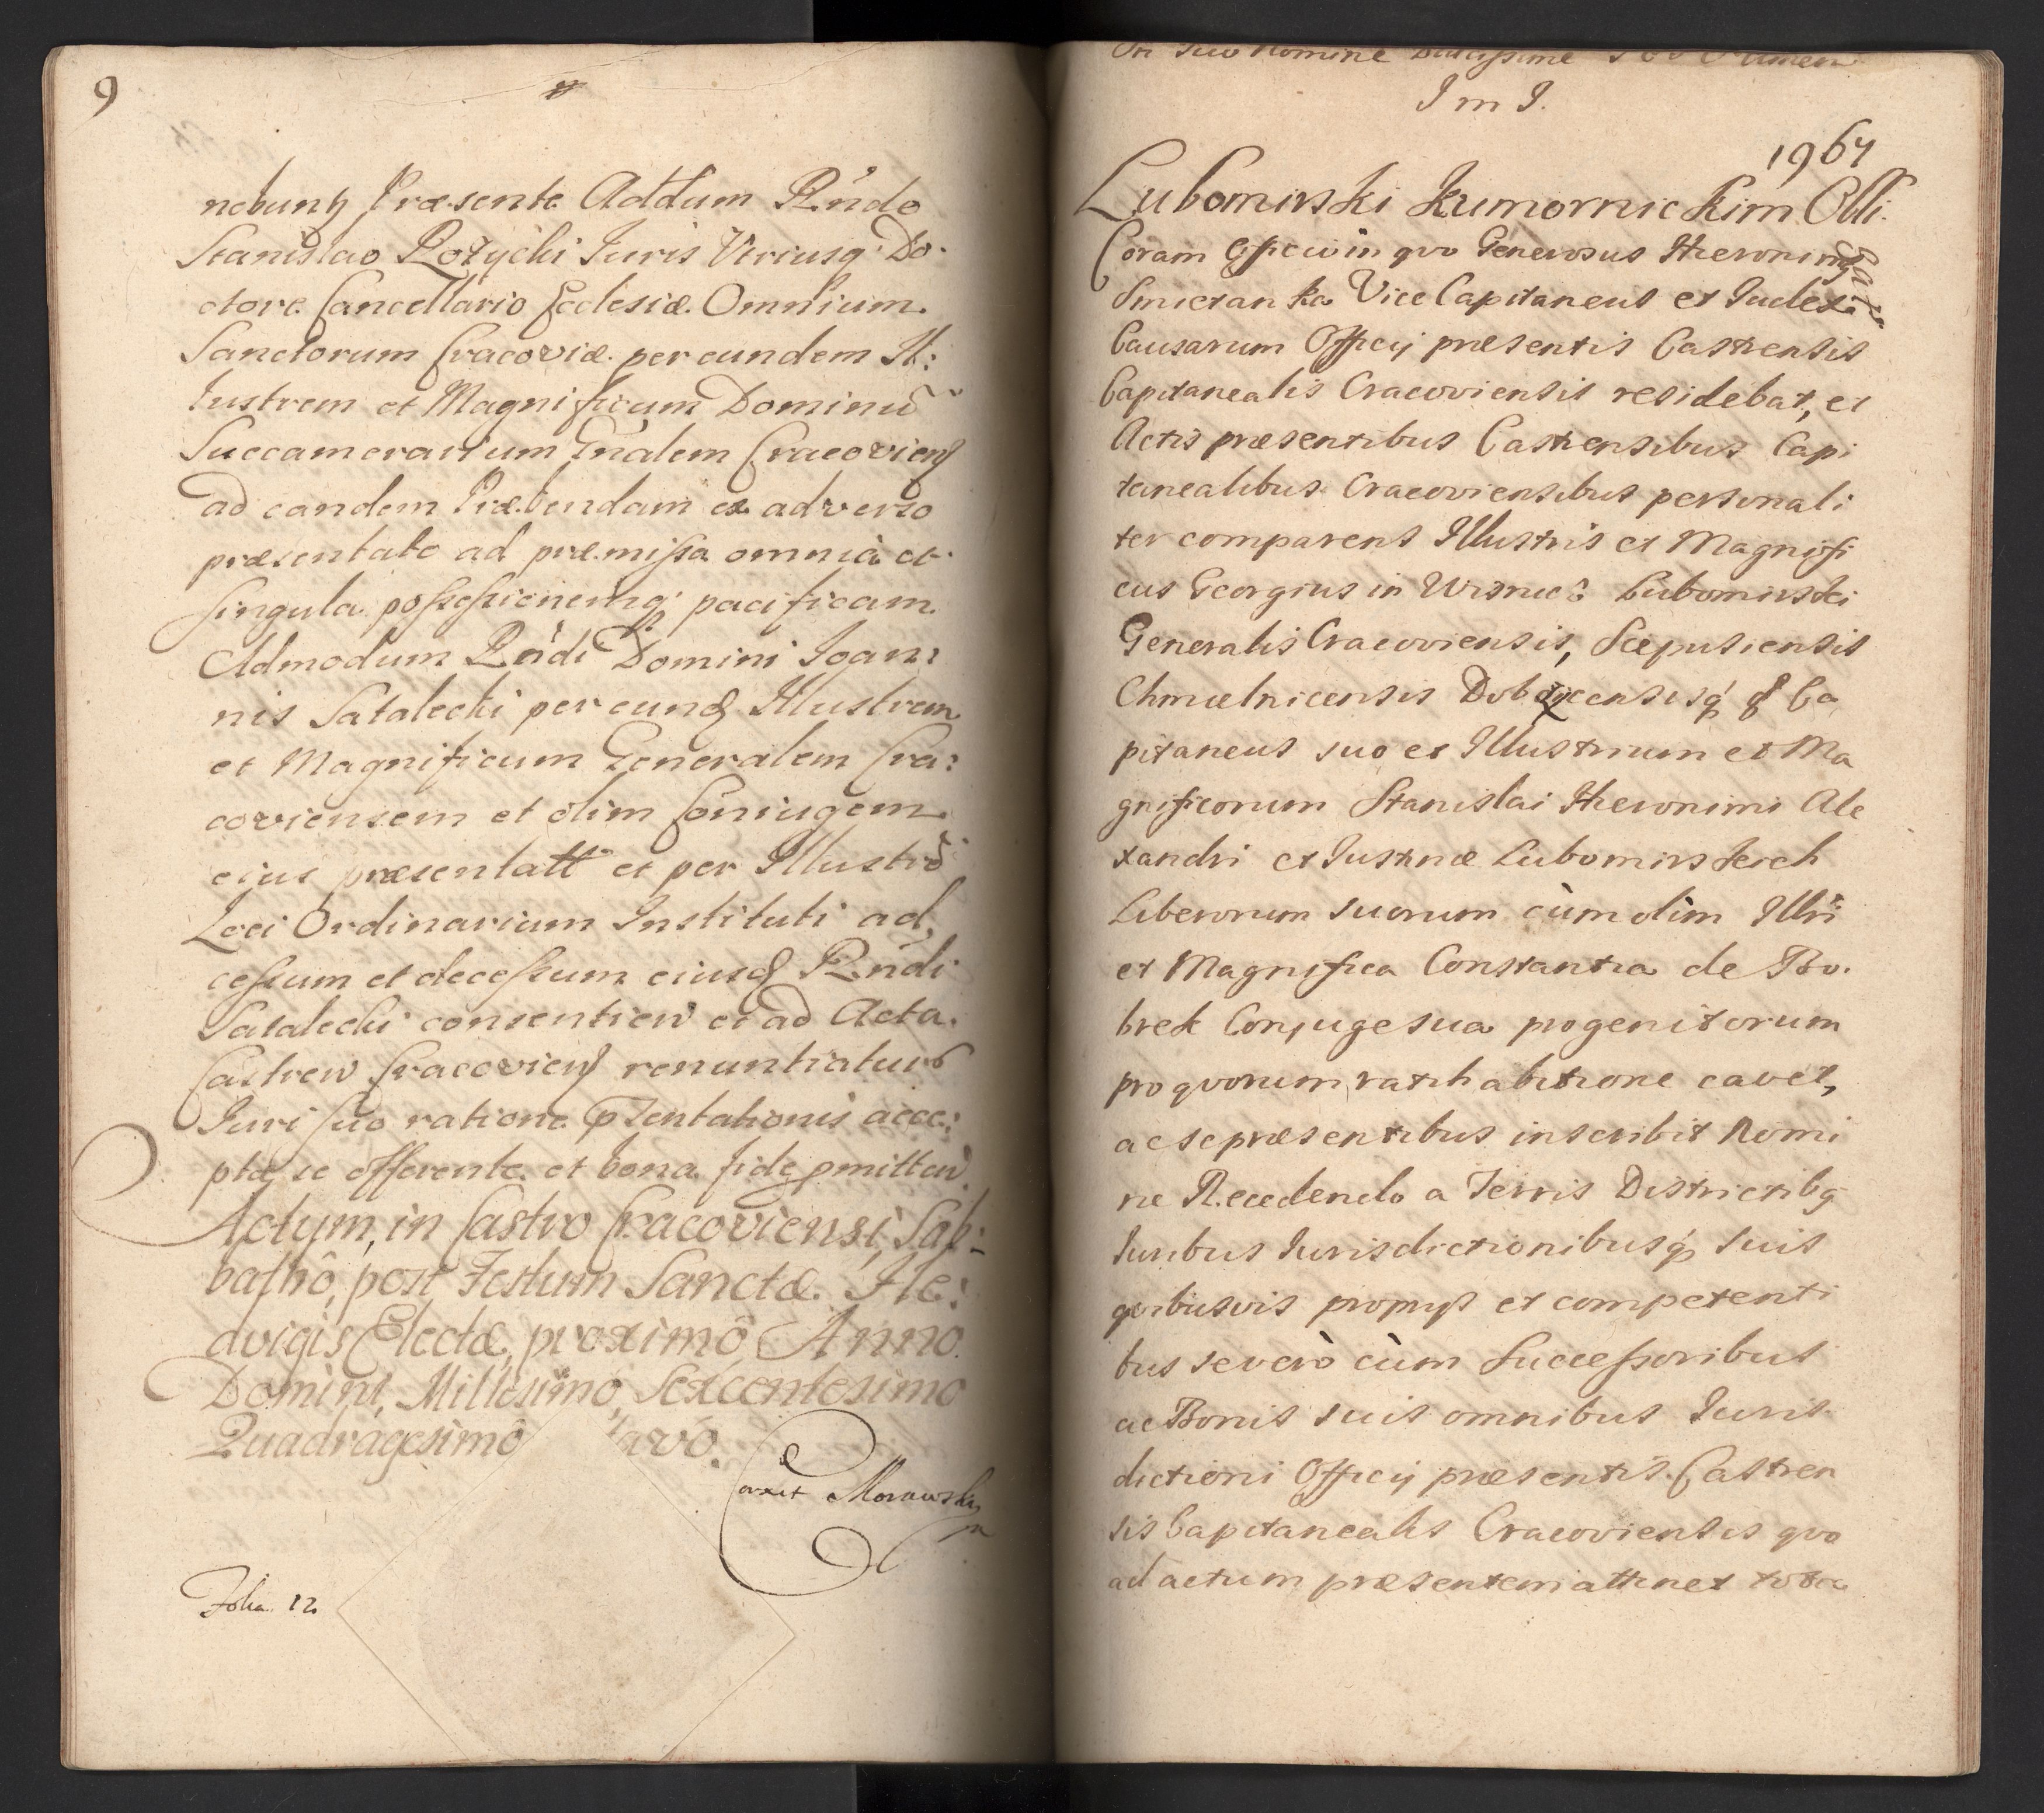 9
nebunt Præsente Addum Rndo
Stanislao Rozycki Iuris Vtriusq Do-
ctore Cancellario Ecclesiæ Omnium
Sanctorum Cracoviæ per eundem Il:
lustrem et Magnificum Dominũ
Succamerarium Gnalem Cracovien
ad eandem Præbendam ex adverso
præsentato ad præmissa omnia et
singula possessionemq pacificam
Admodum Rndi Domini Ioan:
nis Satalecki per eund Illustrem
et Magnificum Generalem Cra:
coviensem et olim Coniugem
eius præsentatt et per Illustrẽ
Loci Ordinarium Instituti ad,
cessum et decessum eiusd Rndi
Satalecki consentien et ad Acta
Castren Cracovien renuntiatur
Iuri suo ratione pzentationis acce:
ptæ se offerente et bona fide pmitten
Actum, in Castro Cracoviensi, Sab-
batho, post Festum Sanctæ He:
dvigis Electæ, proximô, Anno
Domini, Millesimo, Sexcentesimo
Quadragesimô avô.
Coraxit Morawski
Folia 12
Suo Nomine Dulcissime Amen
I m I.
1967
Lubomirski Kumornickim Obli-
gatio.
Coram Officio in quo Generosus Hieronimus
Smietanka Vice Capitaneus et Iudex
Causarum Officij præsentis Castrensis
Capitanealis Cracoviensis residebat, et
Actis præsentibus Castrensibus Capi
tanealibus Cracoviensibus personali
ter comparens Illustris et Magnifi
cus Georgius in Wisnic: Lubomirski
Generalis Cracoviensis, Scepusiensis
Chmielnicensis Dobczycensisq Ca
pitaneus suo et Illustrium et Ma
gnificorum Stanislai Hieronimi Ale
xandri et Iustinæ Lubomirskich
Liberorum suorum cùm olim Illri
et Magnifica Constantia de Bo-
brek Conjuge sua progenitorum
pro quorum ratihabitione cavet,
ac se præsentibus inscribit Nomi
ne Recedendo a Terris Districtibq
Iuribus Iurisdictionibusq suis
quibusvis proprys et competenti
bus se verò cùm Successoribus
ac Bonis suis omnibus Iuris
dictioni Officij præsentis Castren
sis Capitanealis Cracoviensis quo
ad actum præsentem attinet totea